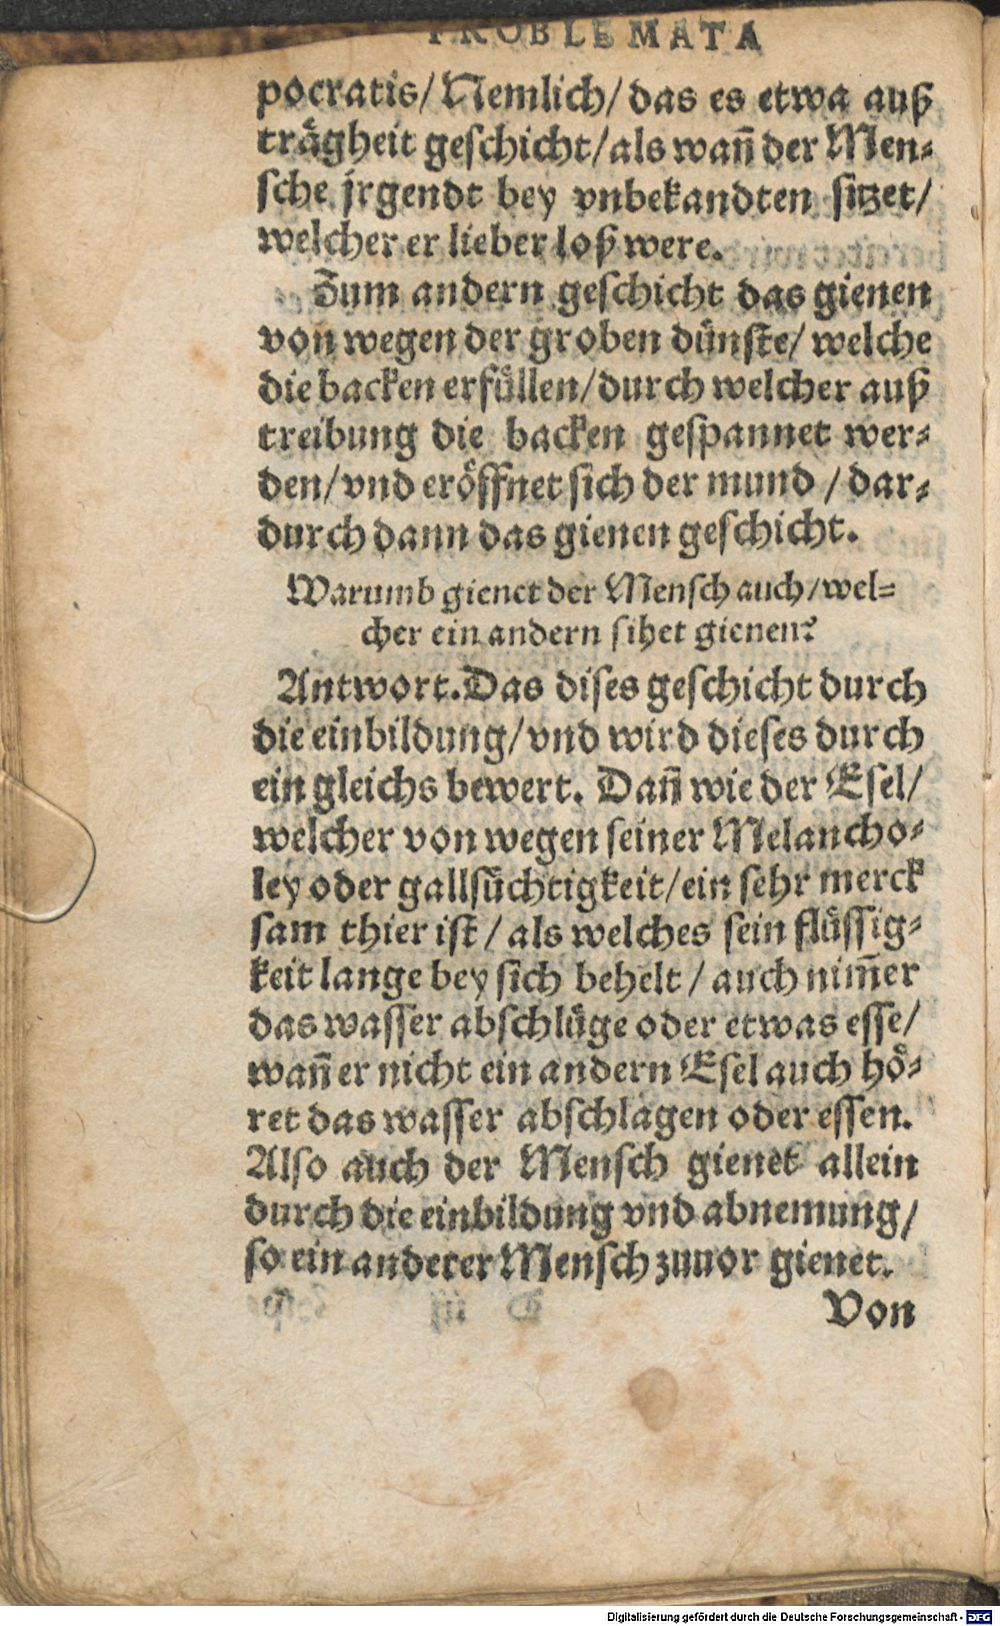 PROBLEMATA
pocratis/ Nemlich/ das es etwa auß
trägheit geschicht/ als wañ der Men-
sche jrgendt bey vnbekandten sitzet/
welcher er lieber loß were.
Zum andern geschicht das gienen
von wegen der groben dünste/ welche
die backen erfüllen/ durch welcher auß
treibung die backen gespannet wer-
den/ vnd eröffnet sich der mund / dar-
durch dann das gienen geschicht.
Warumb gienet der Mensch auch/ wel-
cher ein andern sihet gienen?
Antwort. Das dises geschicht durch
die einbildung/ vnd wird dieses durch
ein gleichs bewert. Dañ wie der Esel/
welcher von wegen seiner Melancho-
ley oder gallsüchtigkeit/ ein sehr merck
sam thier ist / als welches sein flüssig-
keit lange bey sich behelt / auch nim̄er
das wasser abschlüge oder etwas esse/
wañ er nicht ein andern Esel auch hö-
ret das wasser abschlagen oder essen.
Also auch der Mensch gienet allein
durch die einbildung vnd abnemung/
so ein anderer Mensch zuuor gienet.
Von
Digitalisierung gefördert durch die Deutsche Forschungsgemeinschaft - DFG